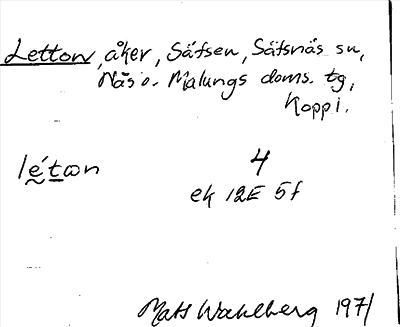 Letton, åker, Säfsen, Säfsnäs sn,
Näs o. Malungs doms. tg,
Koppl.
létɷn
4
ek 12E 5f
Mats Wahlberg 1971